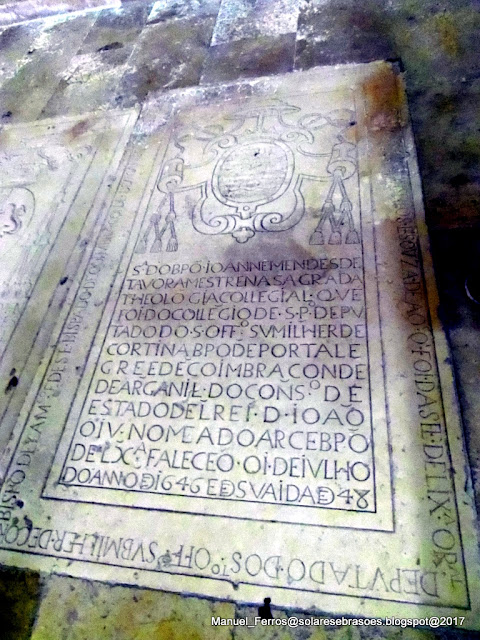 S.DOBPÕ.IOANNEMENDESDE
TAVORAMESTRENASAGRADA
THEOLOGIACOLLEGIAL.QVE
FOIDOCOLLEGIO DE.S.P.DEPV
TADO DO.S.OFFº SVMILHERDE
CORTINA BPO DE PORTALE
GREEDECOIMBRACONDE
DEARGANIL.DOCONSº DE
ESTADODELREI.D.IOAÕ
OIV.NOMEADOARCEBPÕ
DE LXª FALECEO.OI.DEIVLHO
DOANNODI646EDSVAIDADE48
DEPVTADO.DOSTO.OFFº.SVBMILHER.DECO
Manuel_Ferros@solaresebrasoes.blogspot@2017